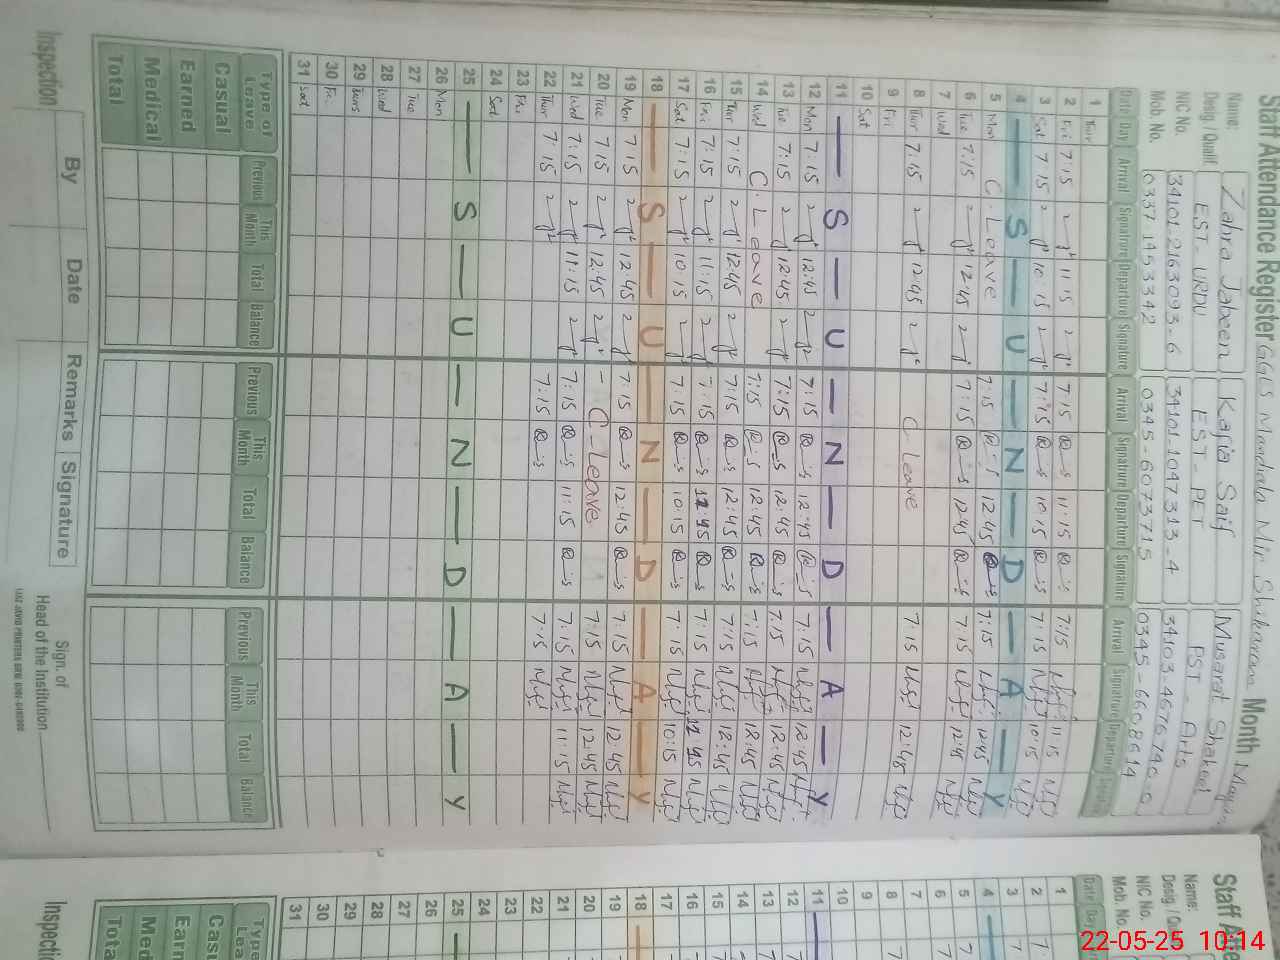 Staff Attendance Register GGES Mandiala Mir Shikaran Month May
Name: Zahra Jabeen Kafia Saif Musarat Shakeel
Desig./Qualif. EST-URDU EST-PET PST-Arts
NIC No. 34101-2163093-6 34101-1047313-4 34103-4676740-0
Mob. No. 0337-1453342 0345-6073715 0345-6608614
Date Day Arrival Signature Departure Signature Arrival Signature Departure Signature Arrival Signature Departure
1 Thur
2 Fri 7:15 11:15 7:15 11:15 7:15 11:15
3 Sat 7:15 10:15 7:15 10:15 7:15 10:15
4 S U N D A Y
5 Mon C. Leave 7:15 12:45 7:15 12:45
6 Tue 7:15 12:45 7:15 12:45 7:15 12:45
7 Wed
8 Thur 7:15 12:45 C. Leave 7:15 12:45
9 Fri
10 Sat
11 S U N D A Y
12 Mon 7:15 12:45 7:15 12:45 7:15 12:45
13 Tue 7:15 12:45 7:15 12:45 7:15 12:45
14 Wed C. Leave 7:15 12:45 7:15 12:45
15 Thur 7:15 12:45 7:15 12:45 7:15 12:45
16 Fri 7:15 11:15 7:15 7:15
17 Sat 7:15 10:15 7:15 10:15 7:15 10:15
18 S U N D A Y
19 Mon 7:15 12:45 7:15 12:45 7:15 12:45
20 Tue 7:15 12:45 C-Leave 7:15 12:45
21 Wed 7:15 11:15 7:15 11:15 7:15 11:15
22 Thur 7:15 7:15 7:15
23 Fri
24 Sat
25 S U N D A Y
26 Mon
27 Tue
28 Wed
29 Thurs
30 Fri
31 Sat
Type of Leave Previous This Month Total Balance Previous This Month Total Balance Previous This Month Total Balance
Casual
Earned
Medical
Total
Inspection By Date Remarks Signature Sign. of
Head of the Institution
Staff Atte
Name:
Desig./Qu
NIC No.
Mob. No.
Date Day
1
2
3
4
5
6
7
8
9
10
11
12
13
14
15
16
17
18
19
20
21
22
23
24
25
26
27
28
29
30
31
Type
Lea
Casu
Earn
Med
Tota
Inspecti
22-05-25 10:14